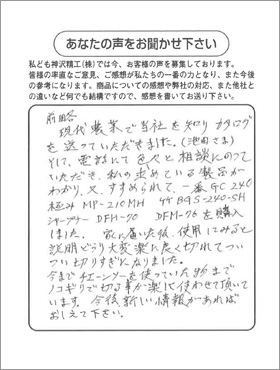 あなたの声をお聞かせ下さい
私ども神沢精工(株)では今、お客様の声を募集しております。
皆様の率直なご意見、ご感想が私たちの一番の力となり、また今後
の参考になります。商品についての感想や弊社の対応、また他社と
の違いなど何でも結構ですので、感想を書いてお送り下さい。
前略
現代農業で当社を知りカタログ
を送っていただきました。(池田さま)
そして、電話にて色々と相談にのって
いただき、私の求めている製品が
わかり、又、すすめられて、一番GC 240
極み MP-210MH ヤブ BGS-240-SH
シャープナー DFH-70 DFM-76を購入
しました。家に届いた后、使用してみると
説明どうり大変楽に良く切れてつい
つい切りすぎになりました。
今までチェーンソーを使っていた所まで
ノコギリで切る事が楽に使わせて頂いて
います。今後新しい情報があれば
おしえて下さい。